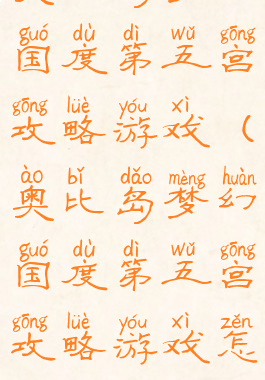 guó dù dì wǔ gōng
国度第五宫
gōng lüè yóu xì
攻略游戏（
ào bǐ dǎo mèng huàn
奥比岛梦幻
guó dù dì wǔ gōng
国度第五宫
gōng lüè yóu xì zěn
攻略游戏怎